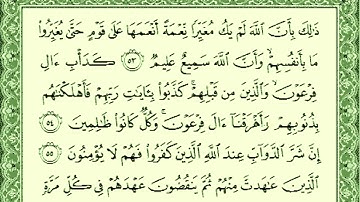 ذَٰلِكَ بِأَنَّ ٱللَّهَ لَمْ يَكُ مُغَيِّرًا نِّعْمَةً أَنْعَمَهَا عَلَىٰ قَوْمٍ حَتَّىٰ يُغَيِّرُوا۟
مَا بِأَنفُسِهِمْ ۙ وَأَنَّ ٱللَّهَ سَمِيعٌ عَلِيمٌ ٥٣ كَدَأْبِ ءَالِ
فِرْعَوْنَ ۙ وَٱلَّذِينَ مِن قَبْلِهِمْ ۚ كَذَّبُوا۟ بِـَٔايَـٰتِ رَبِّهِمْ فَأَهْلَكْنَـٰهُم
بِذُنُوبِهِمْ وَأَغْرَقْنَآ ءَالَ فِرْعَوْنَ ۚ وَكُلٌّ كَانُوا۟ ظَـٰلِمِينَ ٥٤
إِنَّ شَرَّ ٱلدَّوَآبِّ عِندَ ٱللَّهِ ٱلَّذِينَ كَفَرُوا۟ فَهُمْ لَا يُؤْمِنُونَ ٥٥
ٱلَّذِينَ عَـٰهَدتَّ مِنْهُمْ ثُمَّ يَنقُضُونَ عَهْدَهُمْ فِى كُلِّ مَرَّةٍ